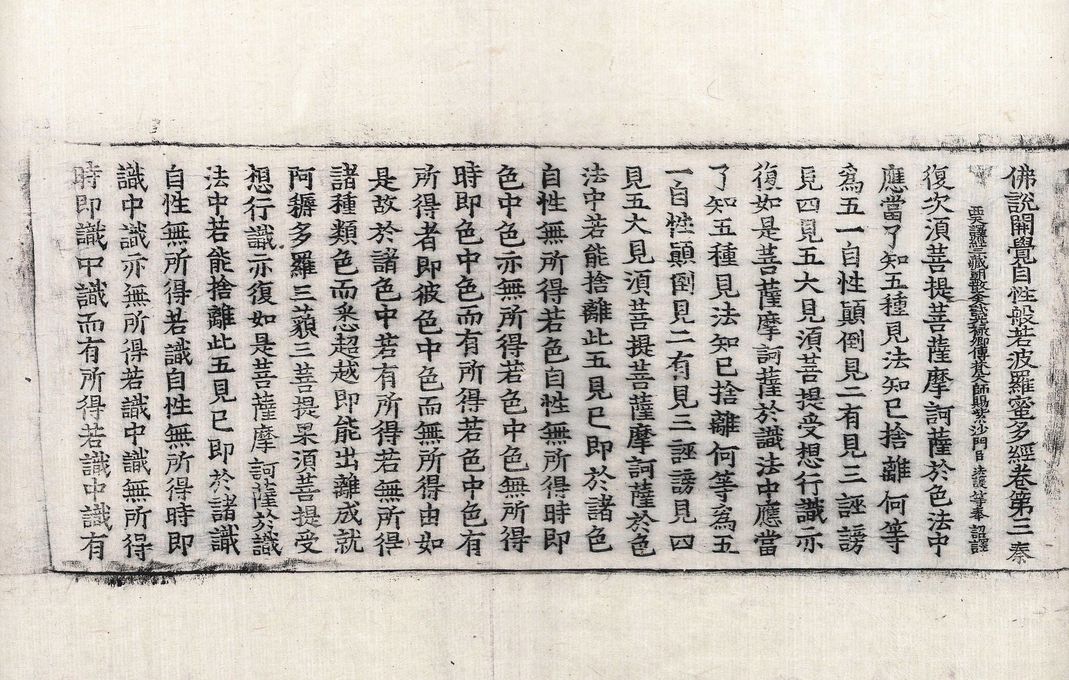 佛說開覺自性般若波羅蜜多經卷第三 秦
譯經三藏朝散大夫試鴻臚卿傳梵大師賜紫沙門臣 法護 等奉 詔譯
復次須菩提菩薩摩訶薩於色法中
應當了知五種見法知已捨離何等
爲五一自性顚倒見二有見三誣謗
見四見五大見須菩提受想行識亦
復如是菩薩摩訶薩於識法中應當
了知五種見法知已捨離何等爲五
一自性顚倒見二有見三誣謗見四
見五大見須菩提菩薩摩訶薩於色
法中若能捨離此五見已即於諸色
自性無所得若色自性無所得時即
色中色亦無所得若色中色無所得
時即色中色而有所得若色中色有
所得者即彼色中色而無所得由如
是故於諸色中若有所得若無所得
諸種類色而悉超越即能出離成就
阿耨多羅三藐三菩提果須菩提受
想行識亦復如是菩薩摩訶薩於識
法中若能捨離此五見已即於諸識
自性無所得若識自性無所得時即
識中識亦無所得若識中識無所得
時即識中識而有所得若識中識有